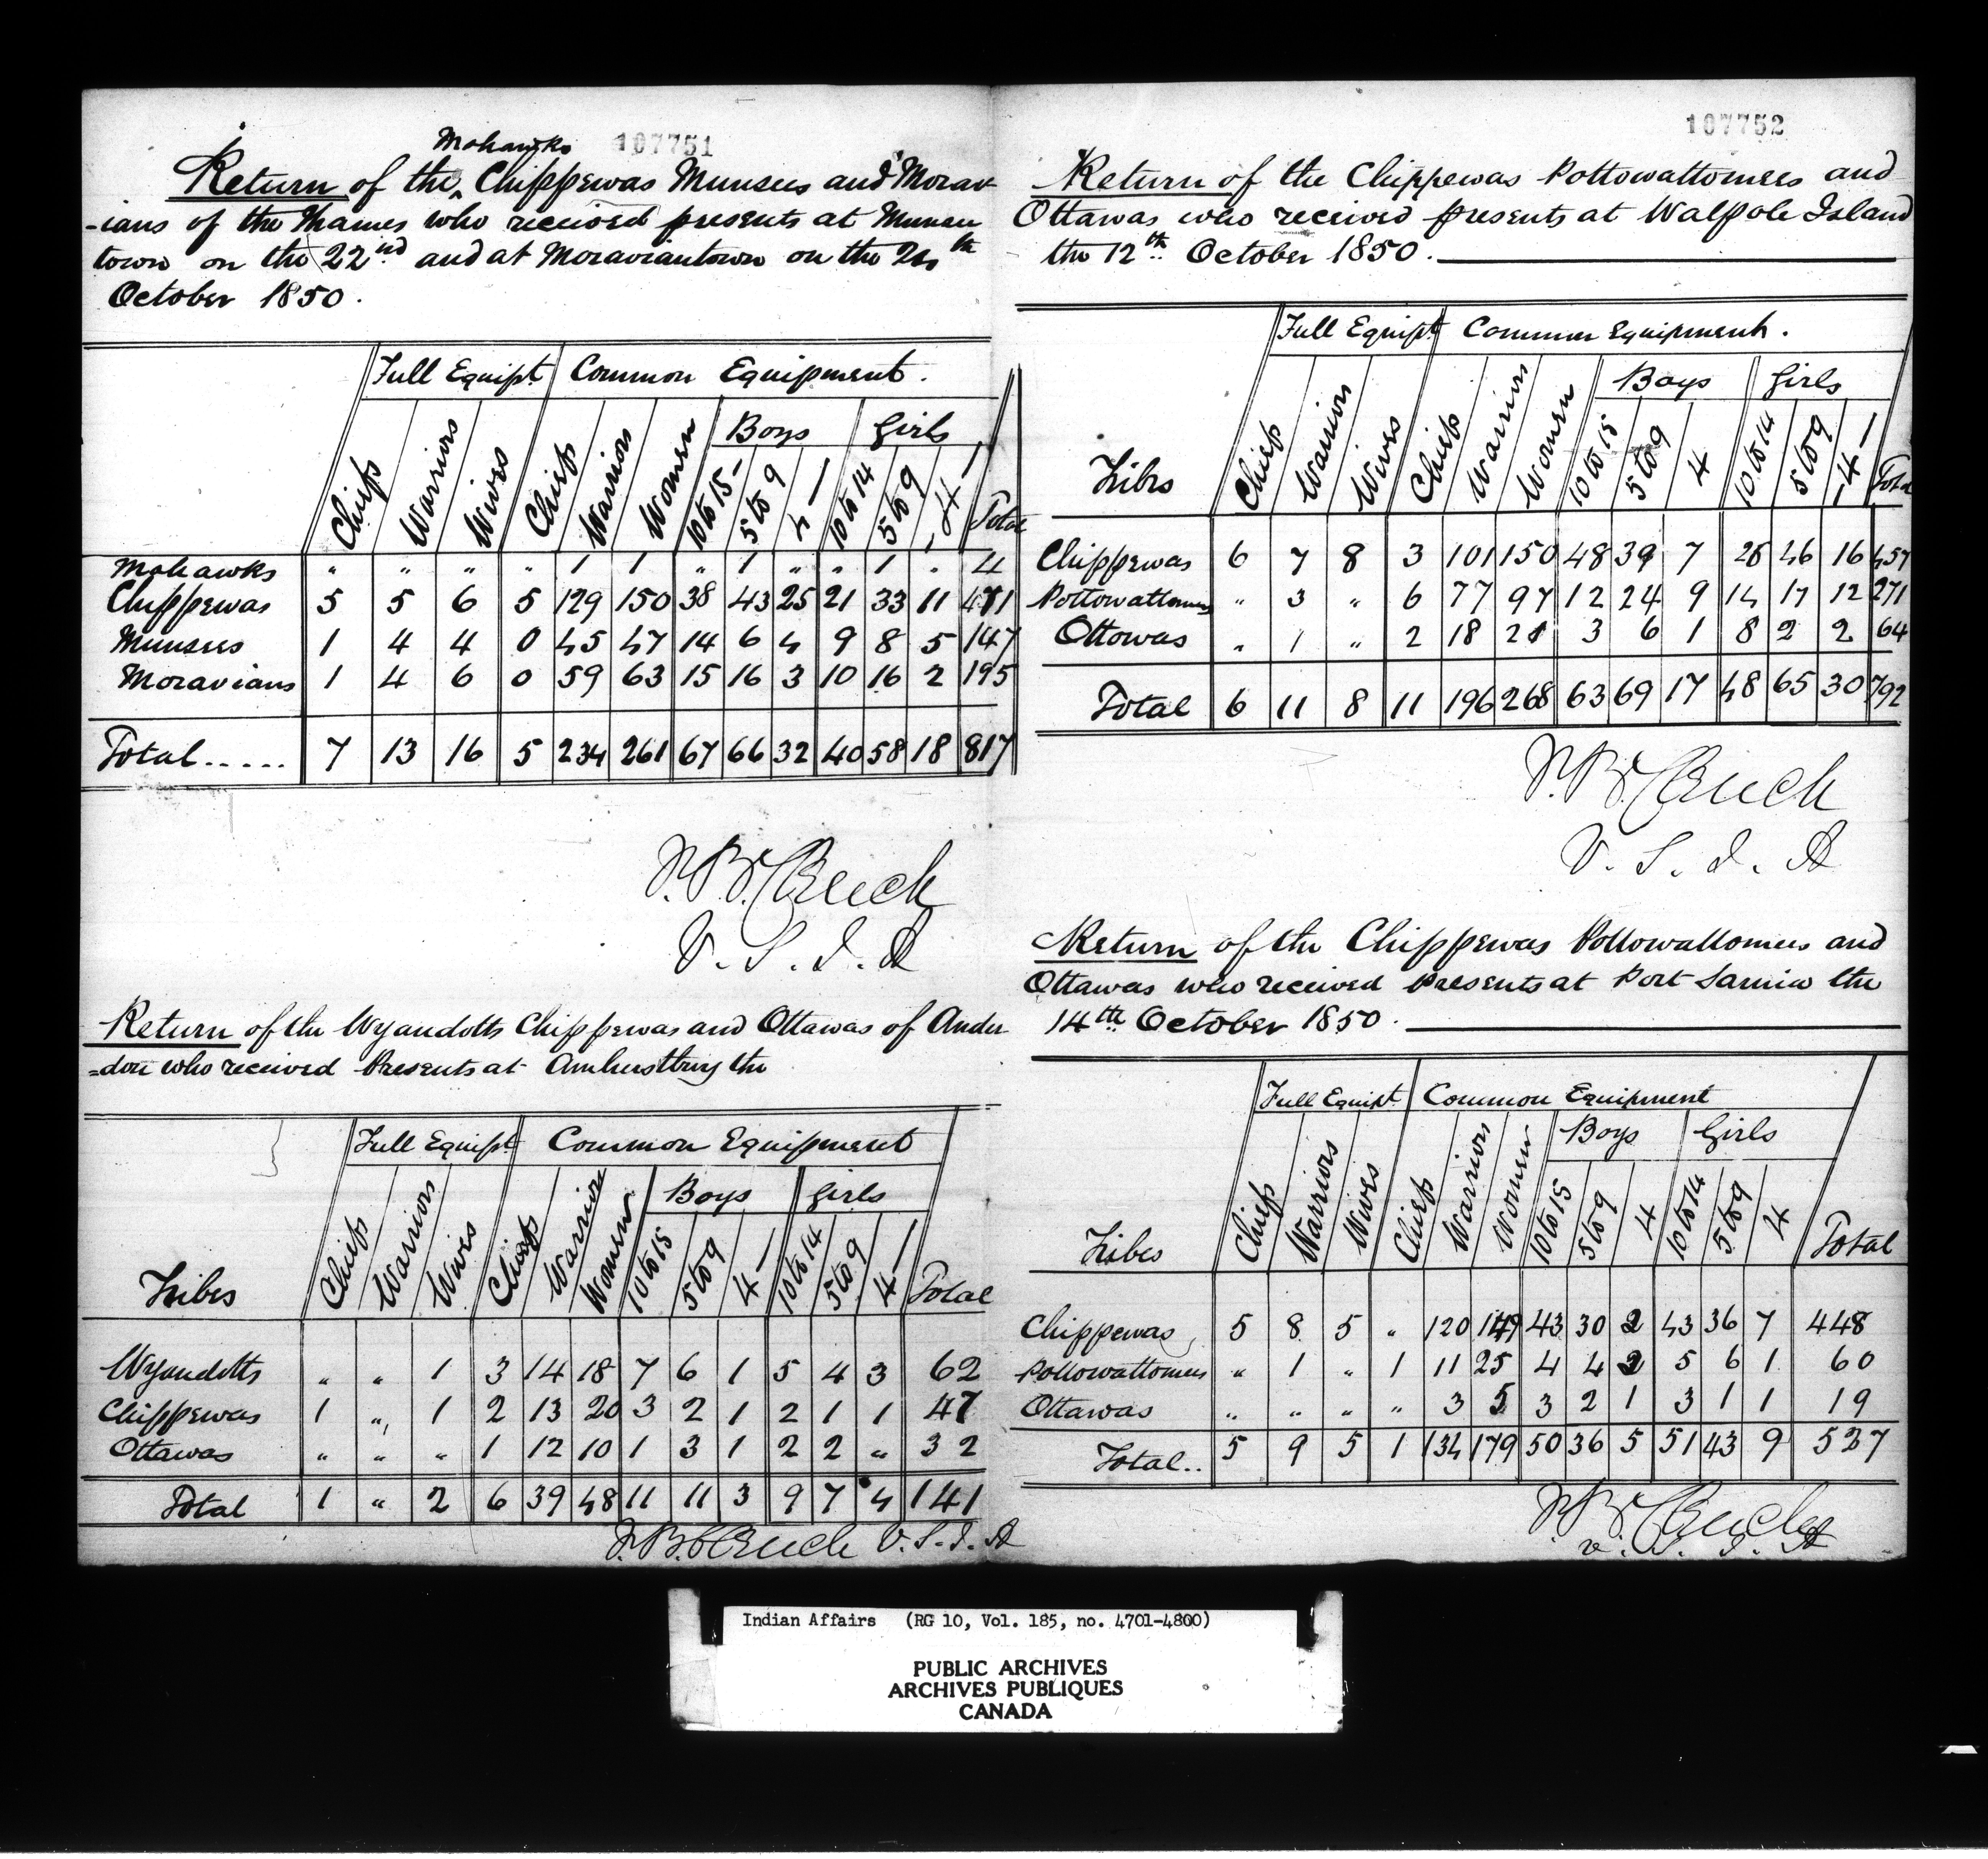 107751
Mohawks
Return of the ^ Chippewas Munsees and Morav
-ians of the Thames who received presents at Munsee
town on the 22nd and at Moraviantown on the 24th
October 1850.
Full Equipt. Common Equipment.
Boys Girls
Chiefs Warriors Wives Chiefs Warriors Women 10 to 15- 5 to 9 4- 10 to 14 5 to 9 -4- Total
Mohawks " " " " 1 1 " 1 " " 1 . 4
Chippewas 5 5 6 5 129 150 38 43 25 21 33 11 471
Munsees 1 4 4 0 45 47 14 6 4 9 8 5 147
Moravians 1 4 6 0 59 63 15 16 3 10 16 2 195
Total..... 7 13 16 5 234 261 67 66 32 40 58 18 817
V. S. I. A
Return of the Wyandotts Chippewas and Ottawas of Ander
=don who received Presents at Amherstburg the
Full Equipt. Common Equipment
Boys Girls
Tribes Chiefs Warriors Wives Chiefs Warriors Women 10 to 15 5 to 9 4- 10 to 14 5 to 9 4- Total
Wyandotts " " 1 3 14 18 7 6 1 5 4 3 62
Chippewas 1 " 1 2 13 20 3 2 1 2 1 1 47
Ottawas " " " 1 12 10 1 3 1 2 2 " 32
Total 1 " 2 6 39 48 11 11 3 9 7 4 141
V. S. I. A
107752
Return of the Chippewas Pottowattomees and
Ottawas who received presents at Walpole Island
the 12th October 1850.
Full Equipt Common Equipment.
Boys Girls
Tribes Chiefs Warriors Wives Chiefs Warriors Women 10 to 15 5 to 9 4 10 to 14 5 to 9 -4- Total
Chippewas 6 7 8 3 101 150 48 39 7 26 46 16 457
Pottowattomees " 3 " 6 77 97 12 24 9 14 17 12 271
Ottowas " 1 " 2 18 21 3 6 1 8 2 2 64
Total 6 11 8 11 196 268 63 69 17 48 65 30 792
V. S. I. A
Return of the Chippewas Pottowattomees and
Ottawas who received Presents at Port Sarnia the
14th October 1850.
Full Equipt. Common Equipment
Boys Girls
Tribes Chiefs Warriors Wives Chiefs Warriors Women 10 to 15 5 to 9 4 10 to 14 5 to 9 4 Total
Chippewas 5 8 5 " 120 149 43 30 2 43 36 7 448
Pottowattomees " 1 " 1 11 25 4 4 2 5 6 1 60
Ottawas " " " " 3 5 3 2 1 3 1 1 19
Total.. 5 9 5 1 134 179 50 36 5 51 43 9 527
V. S. I. A
Indian Affairs (RG 10, Vol. 185, no. 4701-4800)
PUBLIC ARCHIVES
ARCHIVES PUBLIQUES
CANADA